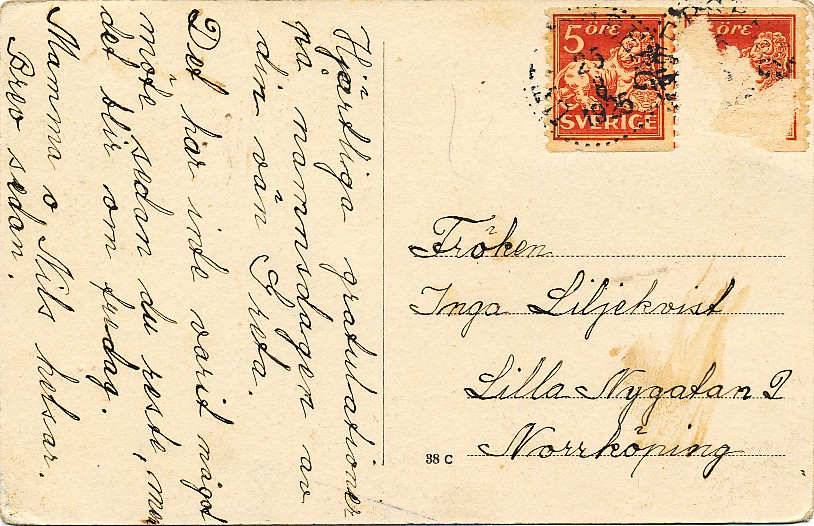 Hjärtliga gratulationer
på namnsdagen av
din vän Greta.
Det har inte varit något
möte sedan du reste, men
det blir om fredag.
Mamma o, Nils helsar.
Brev sedan.
5 ÖRE
SVERIGE
ÖRE
25
1925
Fröken
Inga Liljekvist
Lilla Nygatan 2
Norrköping
38 C